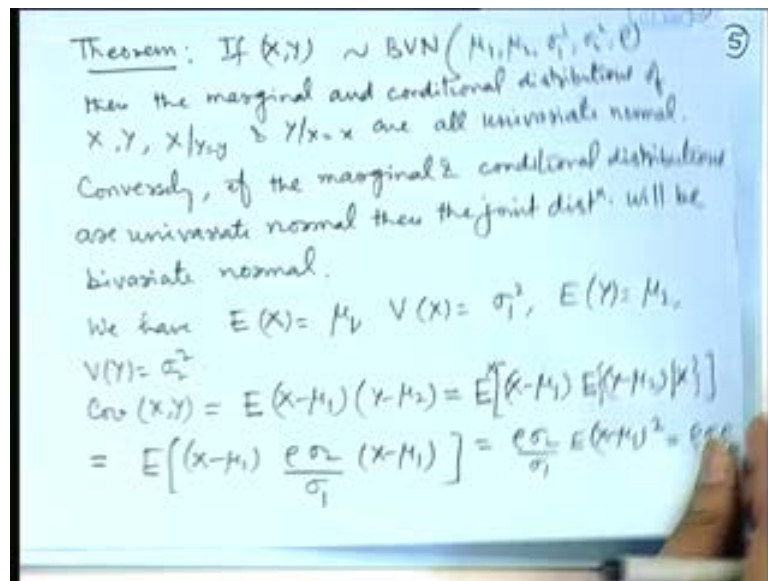 ⑤
Theorem: If (X,Y) ~ BVN(μ₁, μ₂, σ₁², σ₂², ρ)
then the marginal and conditional distributions of
X, Y, X|Y=y & Y|X=x are all univariate normal.
Conversely, if the marginal & conditional distributions
are univariate normal then the joint distⁿ. will be
bivariate normal.
We have E(X) = μ₁, V(X) = σ₁², E(Y) = μ₂,
V(Y) = σ₂²
Cov (X,Y) = E(X-μ₁)(Y-μ₂) = E[(X-μ₁) E{(Y-μ₂)|X}]
= E[(X-μ₁) ρσ₂/σ₁ (X-μ₁)] = ρσ₂/σ₁ E(X-μ₁)² =